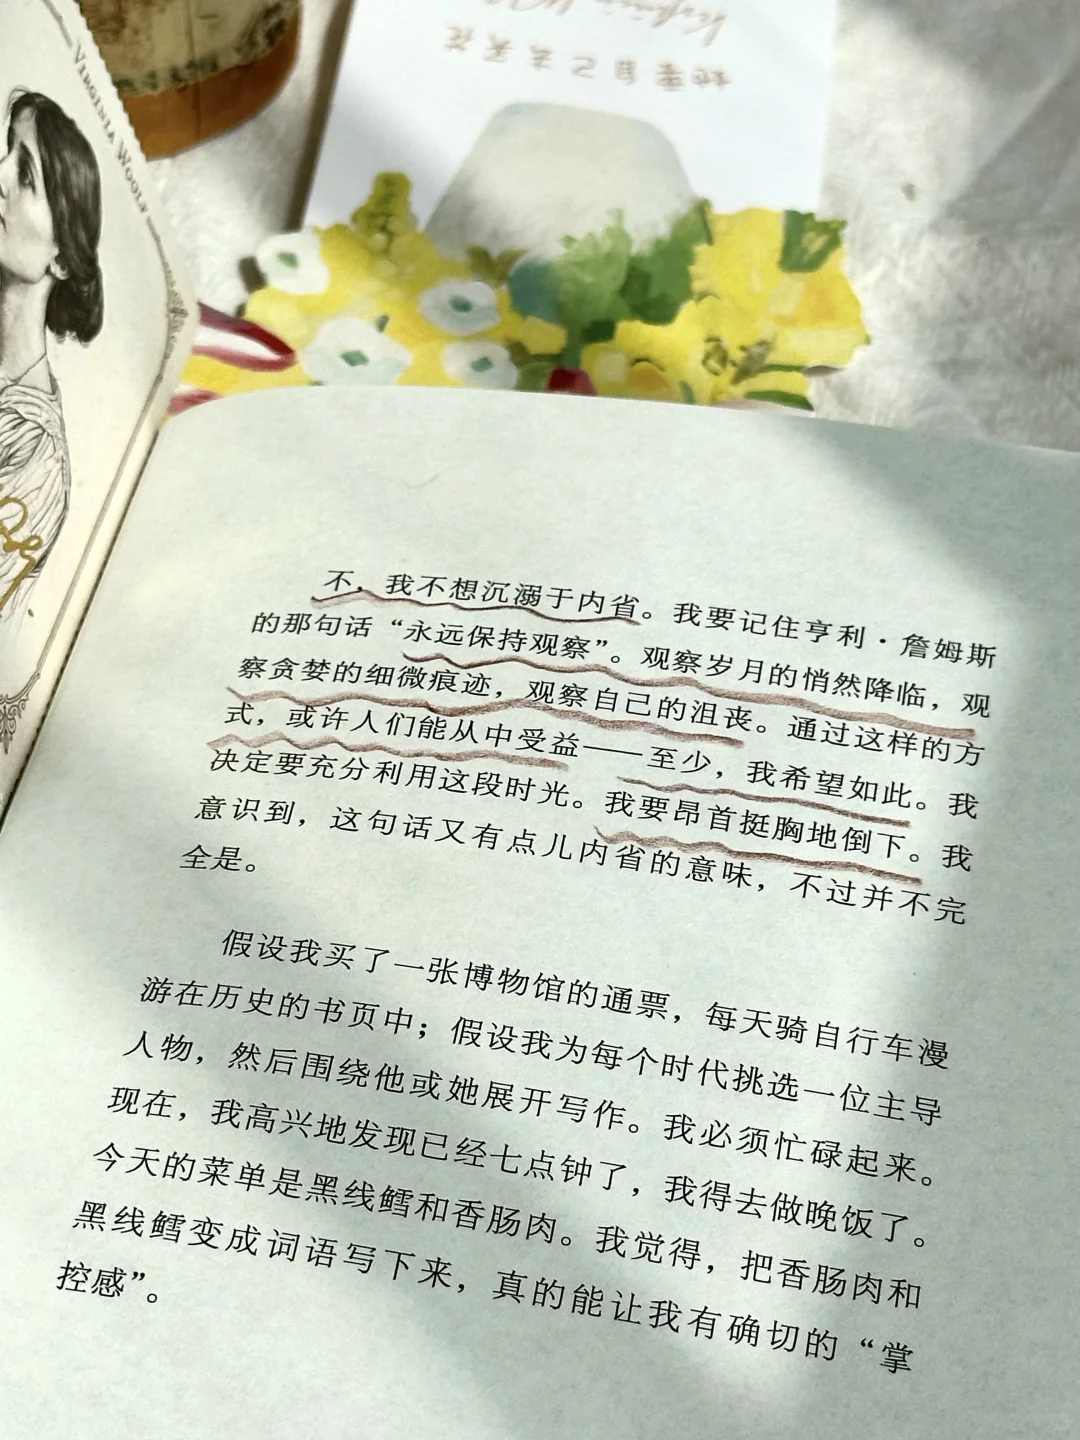 VIRGINIA WOOLF
她要自己去买花
不，我不想沉溺于内省。我要记住亨利·詹姆斯
的那句话“永远保持观察”。观察岁月的悄然降临，观
察贪婪的细微痕迹，观察自己的沮丧。通过这样的方
式，或许人们能从中受益——至少，我希望如此。我
决定要充分利用这段时光。我要昂首挺胸地倒下。我
意识到，这句话又有点儿内省的意味，不过并不完
全是。
假设我买了一张博物馆的通票，每天骑自行车漫
游在历史的书页中；假设我为每个时代挑选一位主导
人物，然后围绕他或她展开写作。我必须忙碌起来。
现在，我高兴地发现已经七点钟了，我得去做晚饭了。
今天的菜单是黑线鳕和香肠肉。我觉得，把香肠肉和
黑线鳕变成词语写下来，真的能让我有确切的“掌
控感”。